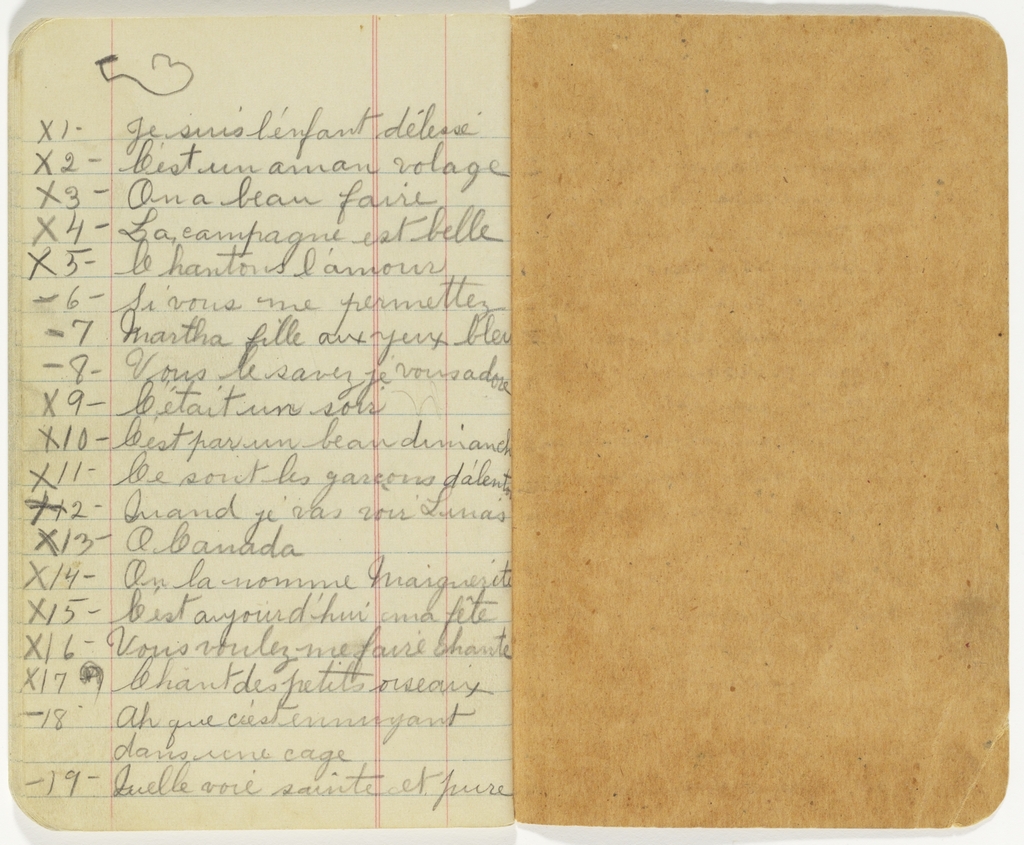 X1- Je suis l'enfant délessé
X2- C'est un aman volage
X3- On a beau faire
X4- La campagne est belle
X5- Chantons l'amour
-6- Si vous me permettez
-7 Martha fille aux yeux bleu
-8- Vous le savez je vous adore
X9- C'était un soir
X10- C'est par un beau dimanch
X11- Ce sont les garçons d'alent
X12- Quand je vas voir
X13- O Canada
X14- On la nomme Maiguerite
X15- C'est aujourd'hui ma fête
X16- Vous voulez me faire chante
X17 Chant des petits oiseaux
-18- Ah que c'est ennuyant
dans une cage
-19- Quelle voie sainte et pure